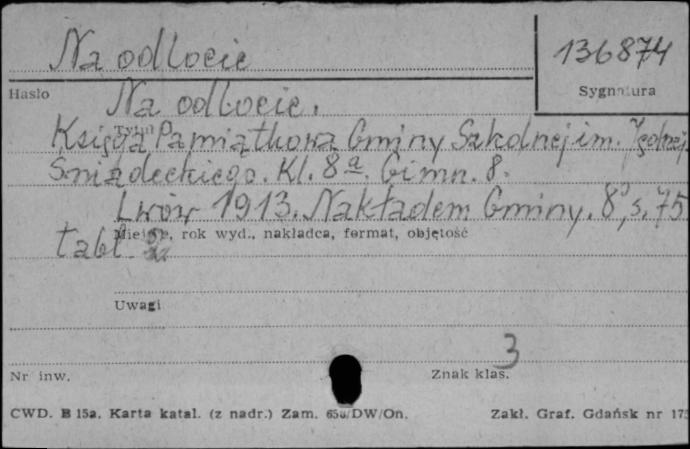 Na odlocie
136874
Hasło
Sygnatura
Na odlocie.
Tytuł
Księga Pamiątkowa Gminy Szkolnej im. Jędrzej.
Śniadeckiego. Kl. 8ª. Gimn. 8.
Lwów 1913. Nakładem Gminy. 8°, s. 75
tabl.
Miejsce, rok wyd., nakładca, format, objętość
Uwagi
3
Nr inw.
Znak klas.
CWD. B 15a. Karta katal. (z nadr.) Zam. DW/On.
Zakł. Graf. Gdańsk nr